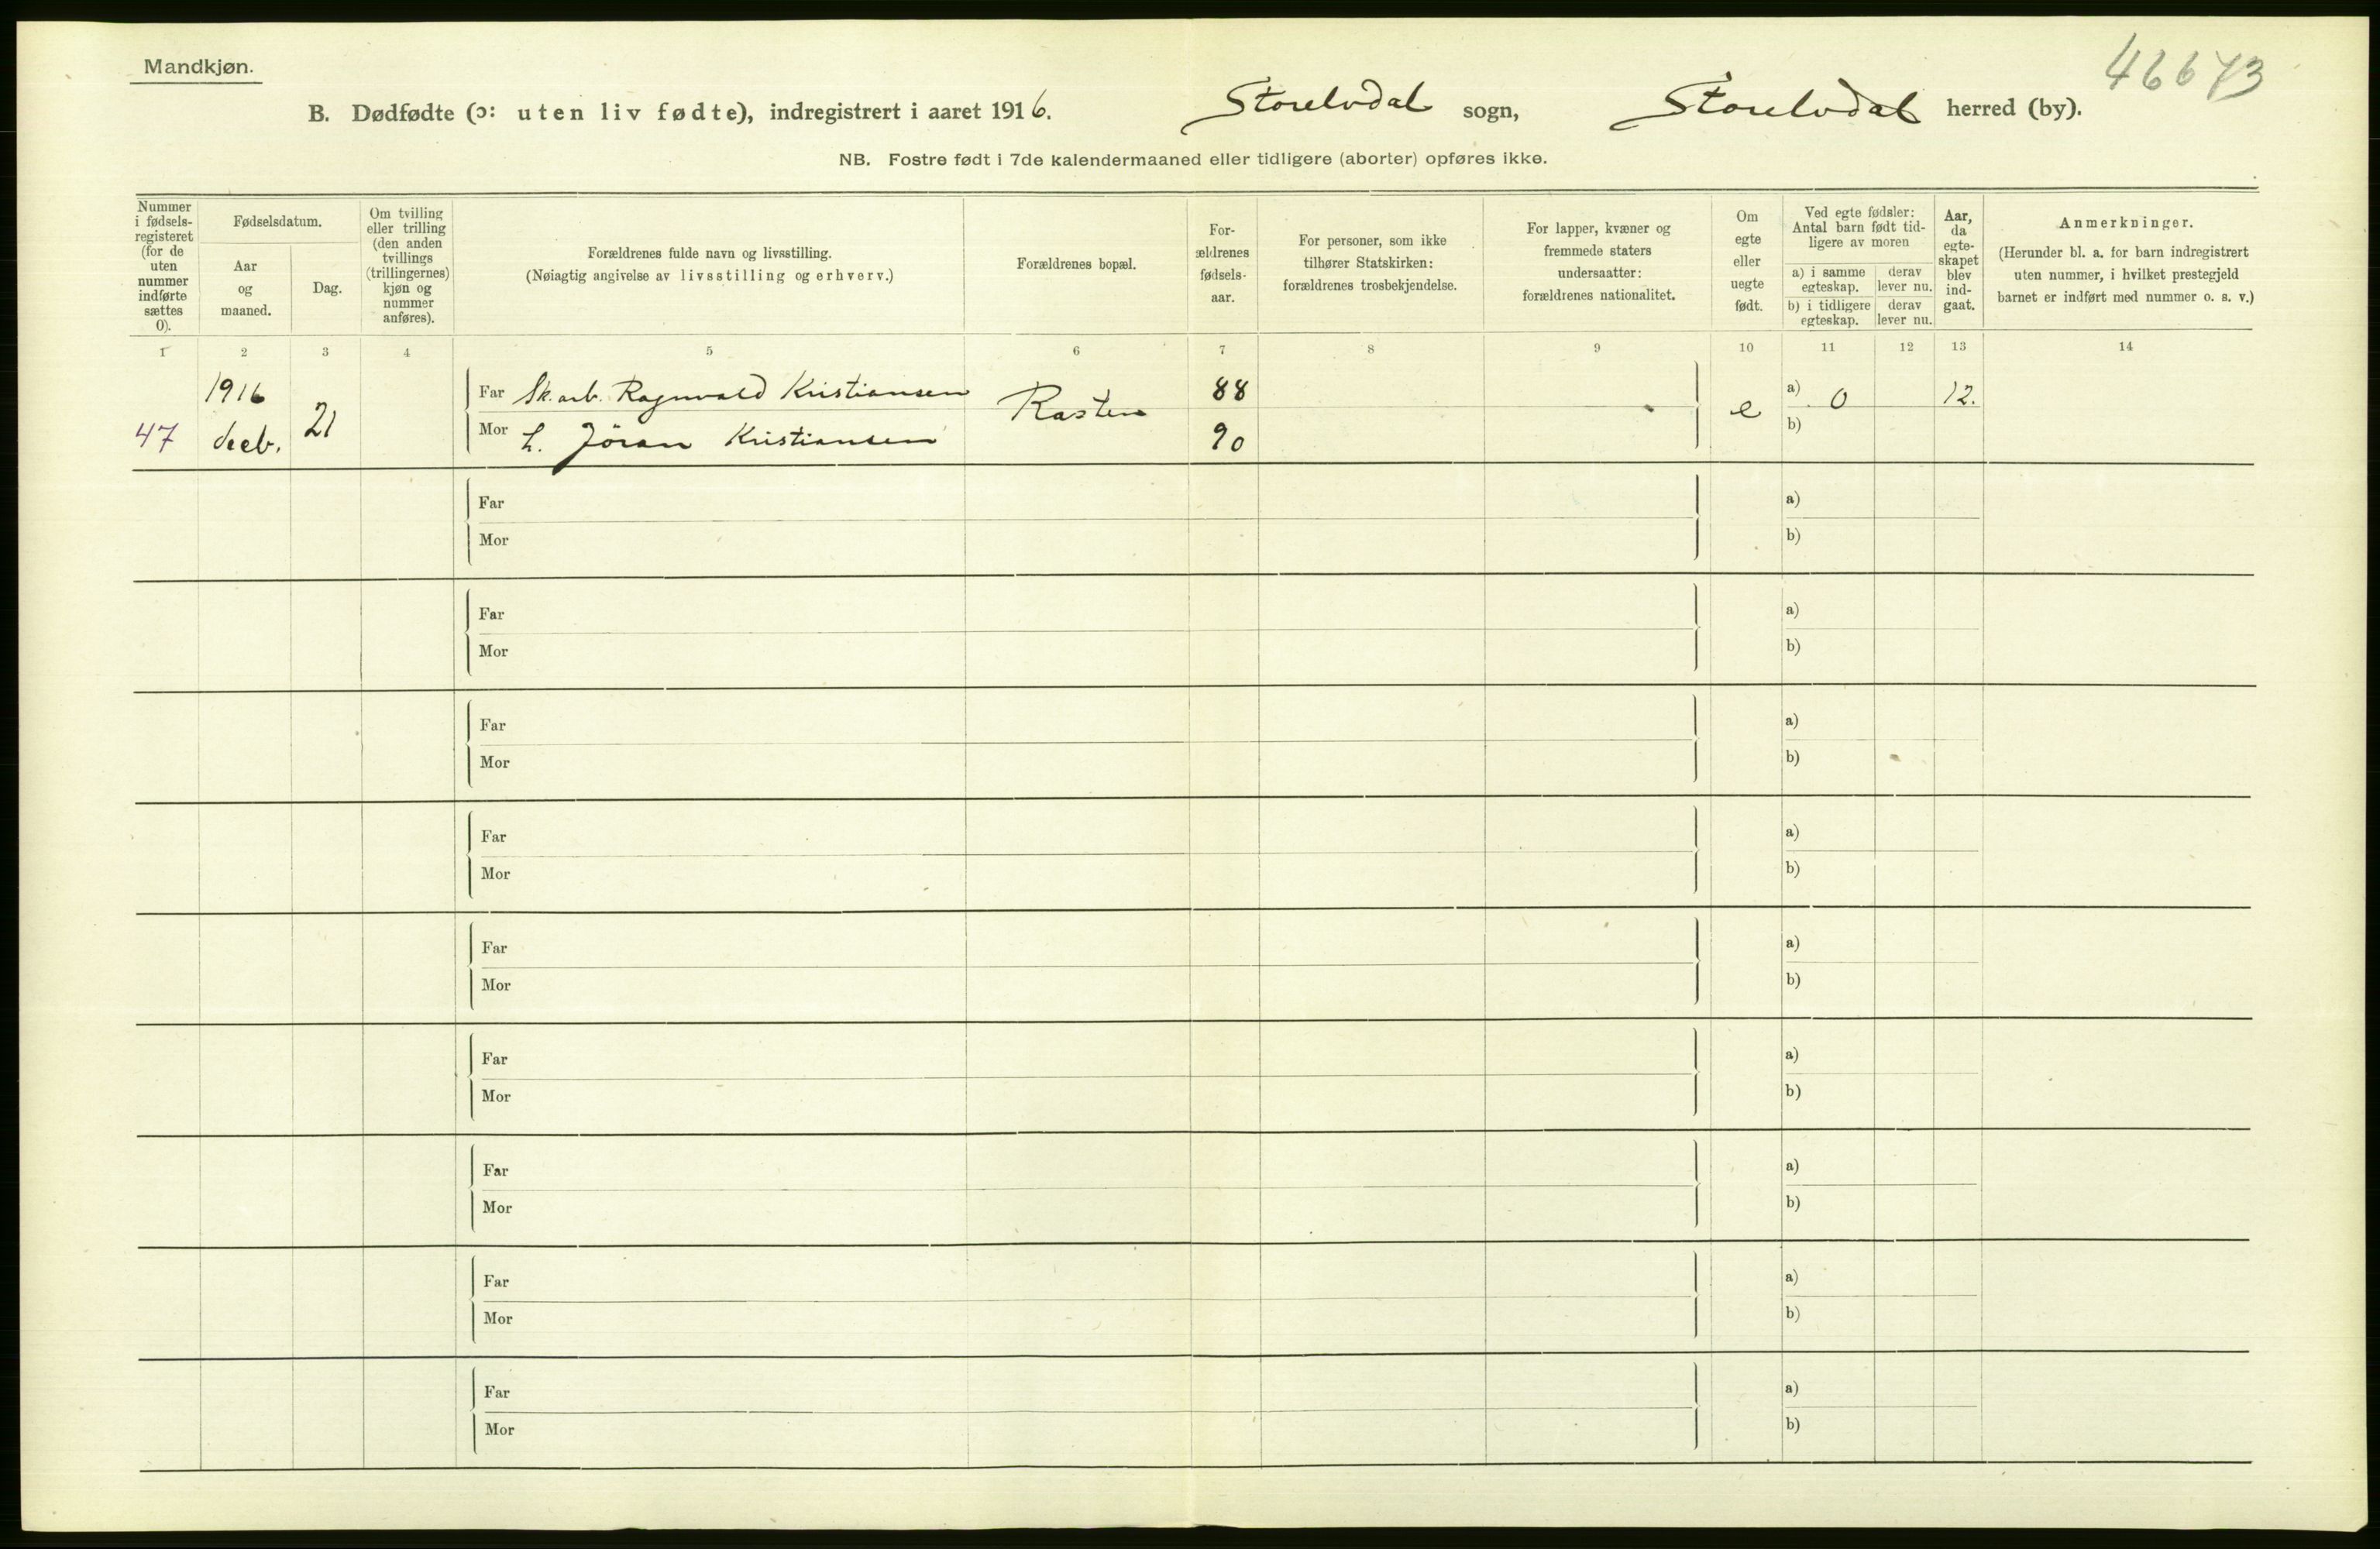 Mandkjøn.
46673
B. Dødfødte (ɔ: uten liv fødte), indregistrert i aaret 1916. Storelvdal sogn, Storelvdal herred (by).
NB. Fostre født i 7de kalendermaaned eller tidligere (aborter) opføres ikke.
Nummer
i fødsels-
registeret
(for de
uten
nummer
indførte
sættes
0).
Fødselsdatum.
Aar
og
maaned.
Dag.
Om tvilling
eller trilling
(den anden
tvillings
(trillingernes)
kjøn og
nummer
anføres).
Forældrenes fulde navn og livsstilling.
(Nøiagtig angivelse av livsstilling og erhverv.)
Forældrenes bopæl.
For-
ældrenes
fødsels-
aar.
For personer, som ikke
tilhører Statskirken:
forældrenes trosbekjendelse.
For lapper, kvæner og
fremmede staters
undersaatter:
forældrenes nationalitet.
Om
egte
eller
uegte
født.
Ved egte fødsler:
Antal barn født tid-
ligere av moren
a) i samme
egteskap.
derav
lever nu.
b) i tidligere
egteskap.
derav
lever nu.
Aar,
da
egte-
skapet
blev
ind-
gaat.
Anmerkninger.
(Herunder bl. a. for barn indregistrert
uten nummer, i hvilket prestegjeld
barnet er indført med nummer o. s. v.)
1 2 3 4 5 6 7 8 9 10 11 12 13 14
1916 Far Sk.arb. Ragnvald Kristiansen Rasten 88 e a) 0 12.
47 decb. 21 Mor h. Jöran Kristiansen 90 b)
Far a)
Mor b)
Far a)
Mor b)
Far a)
Mor b)
Far a)
Mor b)
Far a)
Mor b)
Far a)
Mor b)
Far a)
Mor b)
Far a)
Mor b)
Far a)
Mor b)